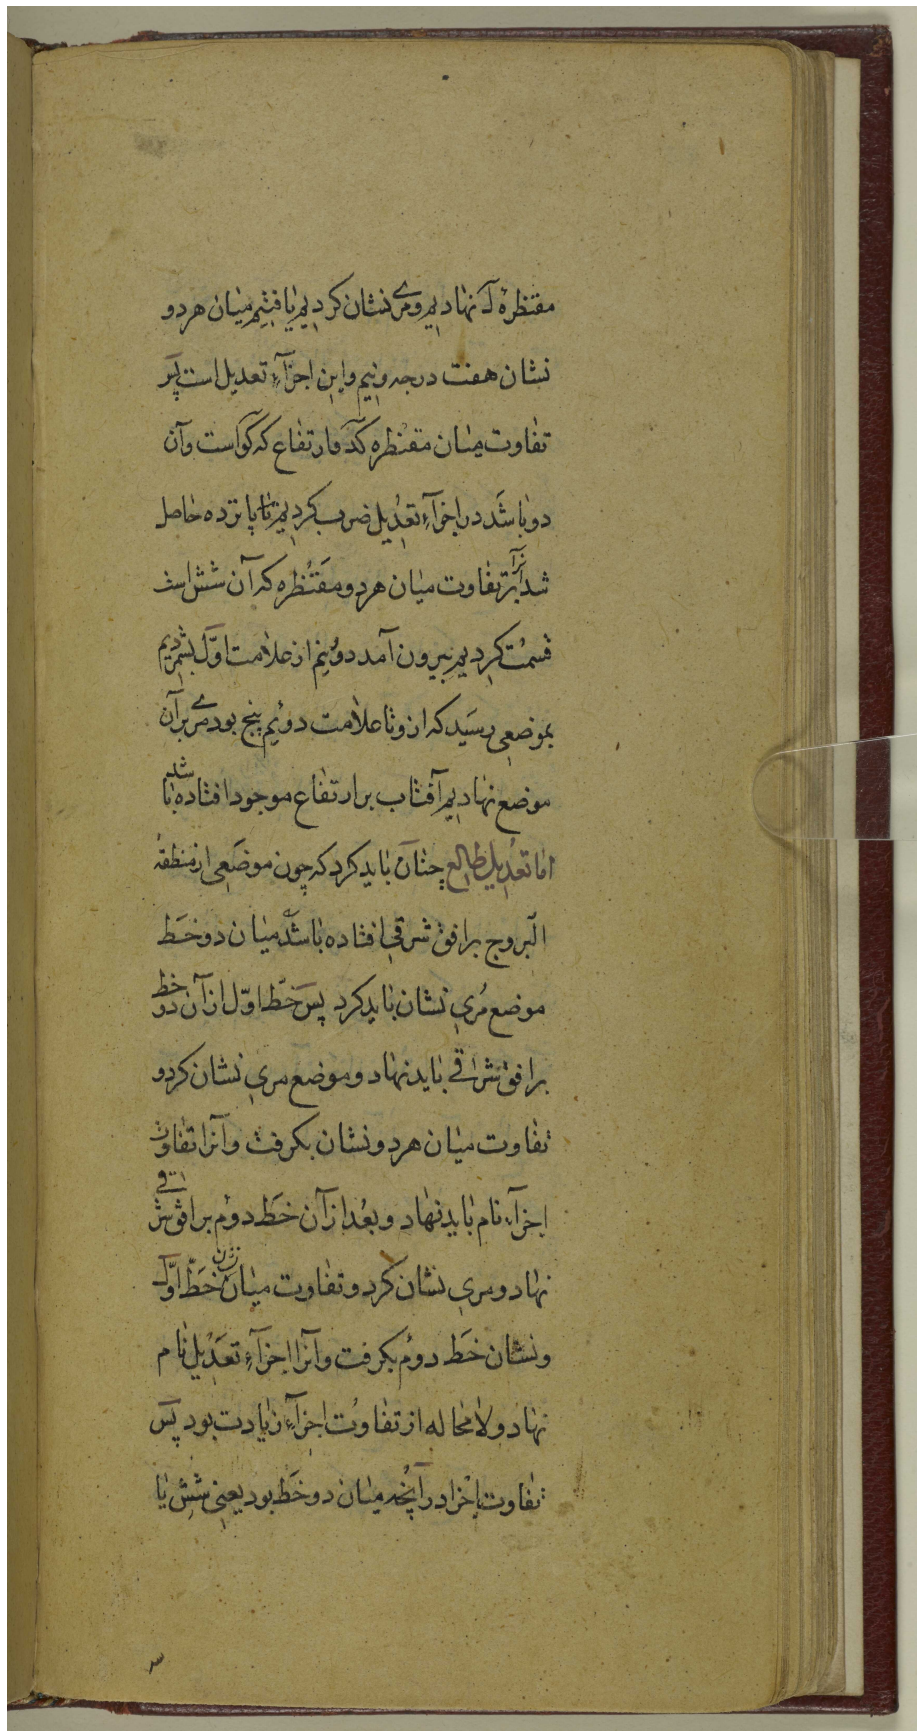 مقنظرهٔ ل نهادیم و مری نشان کردیم یافتیم میان هر دو
نشان هفت درجه و نیم و این اجزآءِ تعدیل است پس
تفاوت میان مقنطره کد و ارتفاع که کو است و آن
دو باشد در اجزآءِ تعدیل ضرب کردیم تا پانزده حاصل
شد آنرا بر تفاوت میان هر دو مقنظره که آن شش است
قسمت کردیم بیرون آمد دو نیم از علامت اوّل بشمردیم
بموضعی رسید که ازو تا علامت دویم پنج بود مری بر آن
موضع نهادیم آفتاب بر ارتفاع موجود افتاده باشد
اما تعدیل طالع چنان باید کرد که چون موضعی از منطقهٔ
البروج بر افق شرقی افتاده باشد میان دو خط
موضع مُری نشان باید کرد پس خطّ اوّل از آن دو خط
بر افق شرقی باید نهاد و موضع مری نشان کرد و
تفاوت میان هر دو نشان بکرفت و آنرا تفاوت
اجزآء نام باید نهاد و بعد از آن خط دوم بر افق شرقی
نهاد و مری نشان کرد و تفاوت میان نشان خطّ اوّل
و نشان خط دوم بکرفت و آنرا اجزآءِ تعدیل نام
نهاد و لا محاله از تفاوت اجزآء زیادت بود پس
تفاوت اجزا در آنچه میان دو خط بود یعنی شش یا